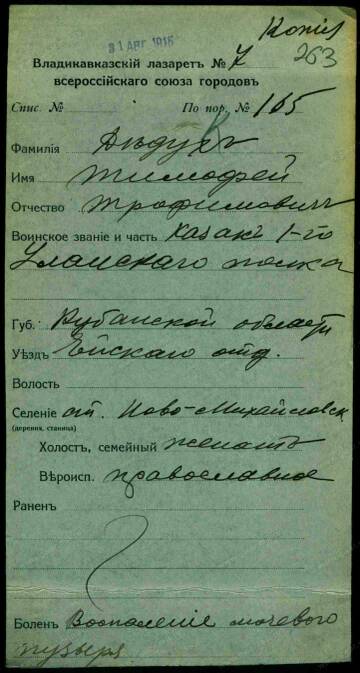 Копия
31 АВГ 1916
263
Владикавказскій лазаретъ № 7
всероссійскаго союза городовъ
Спис. № По пор. № 165
Фамилія Дѣдухъ
Имя Тимофей
Отчество Трофимовичъ
Воинское званіе и часть казакъ 1-го
полка
Губ. Кубанской области
Уѣздъ Ейскаго отд.
Волость
Селеніе ст. Ново-Михайловск.
(деревня, станица)
Холостъ, семейный женатъ
Вѣроисп. православное
Раненъ
Боленъ Воспаленіе мочевого
пузыря